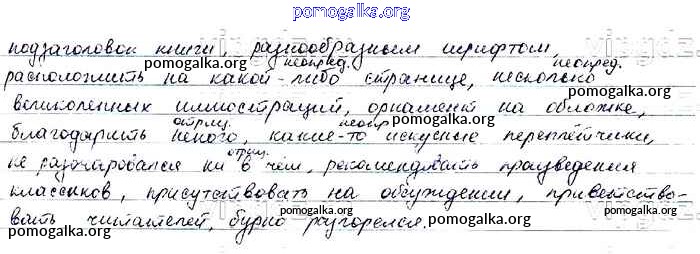 pomogalka.org
подзаголовок книги, разнообразным шрифтом,
неопред. неопред.
расположить на какой-либо странице, несколько
pomogalka.org pomogalka.org
великолепных иллюстраций, орнамент на обложке,
pomogalka.org
отриц. неопр.
благодарить некого, какие-то искусные переплётчики,
pomogalka.org pomogalka.org
отриц.
не разочаровался ни в чём, рекомендовать произведения
pomogalka.org
классиков, присутствовать на обсуждении, приветство-
pomogalka.org pomogalka.org
вать читателей, бурно разгорелся.
pomogalka.org pomogalka.org